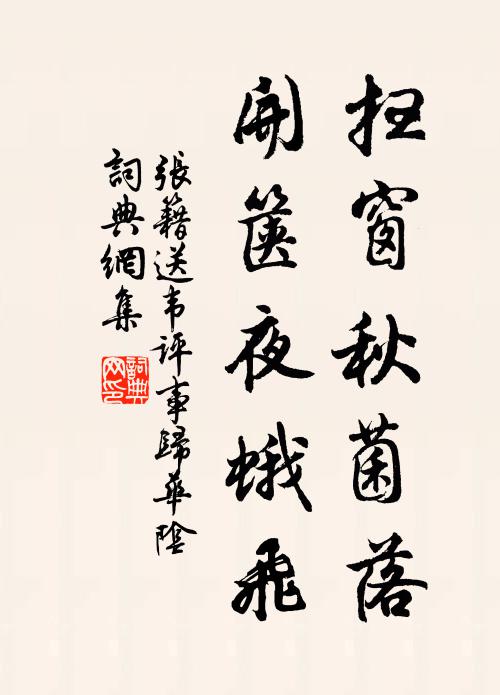 扫窗秋菌落
開篋夜蛾飛
張籍送韦評事歸華陰
詞典網集
詞典网印